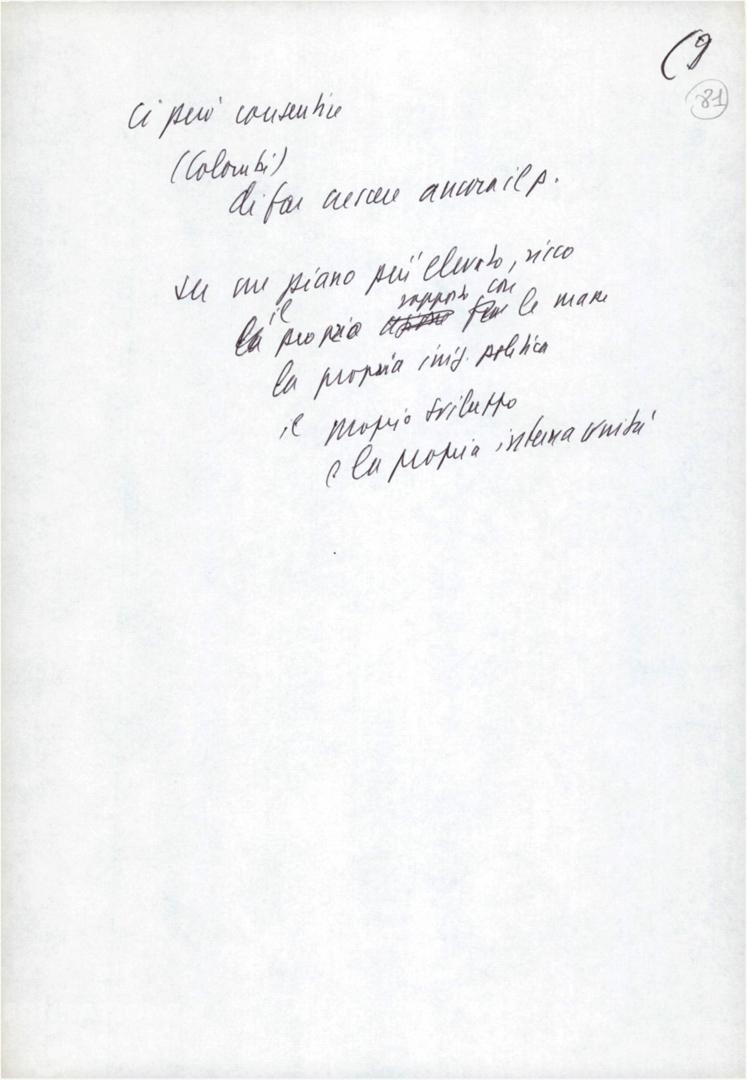 (9
81
ci può consentire
(Colombi)
di far crescere ancora il p.
su un piano più elevato, ricco
il rapporto con
la propria le masse
la propria iniz. politica
il proprio sviluppo
e la propria interna unità